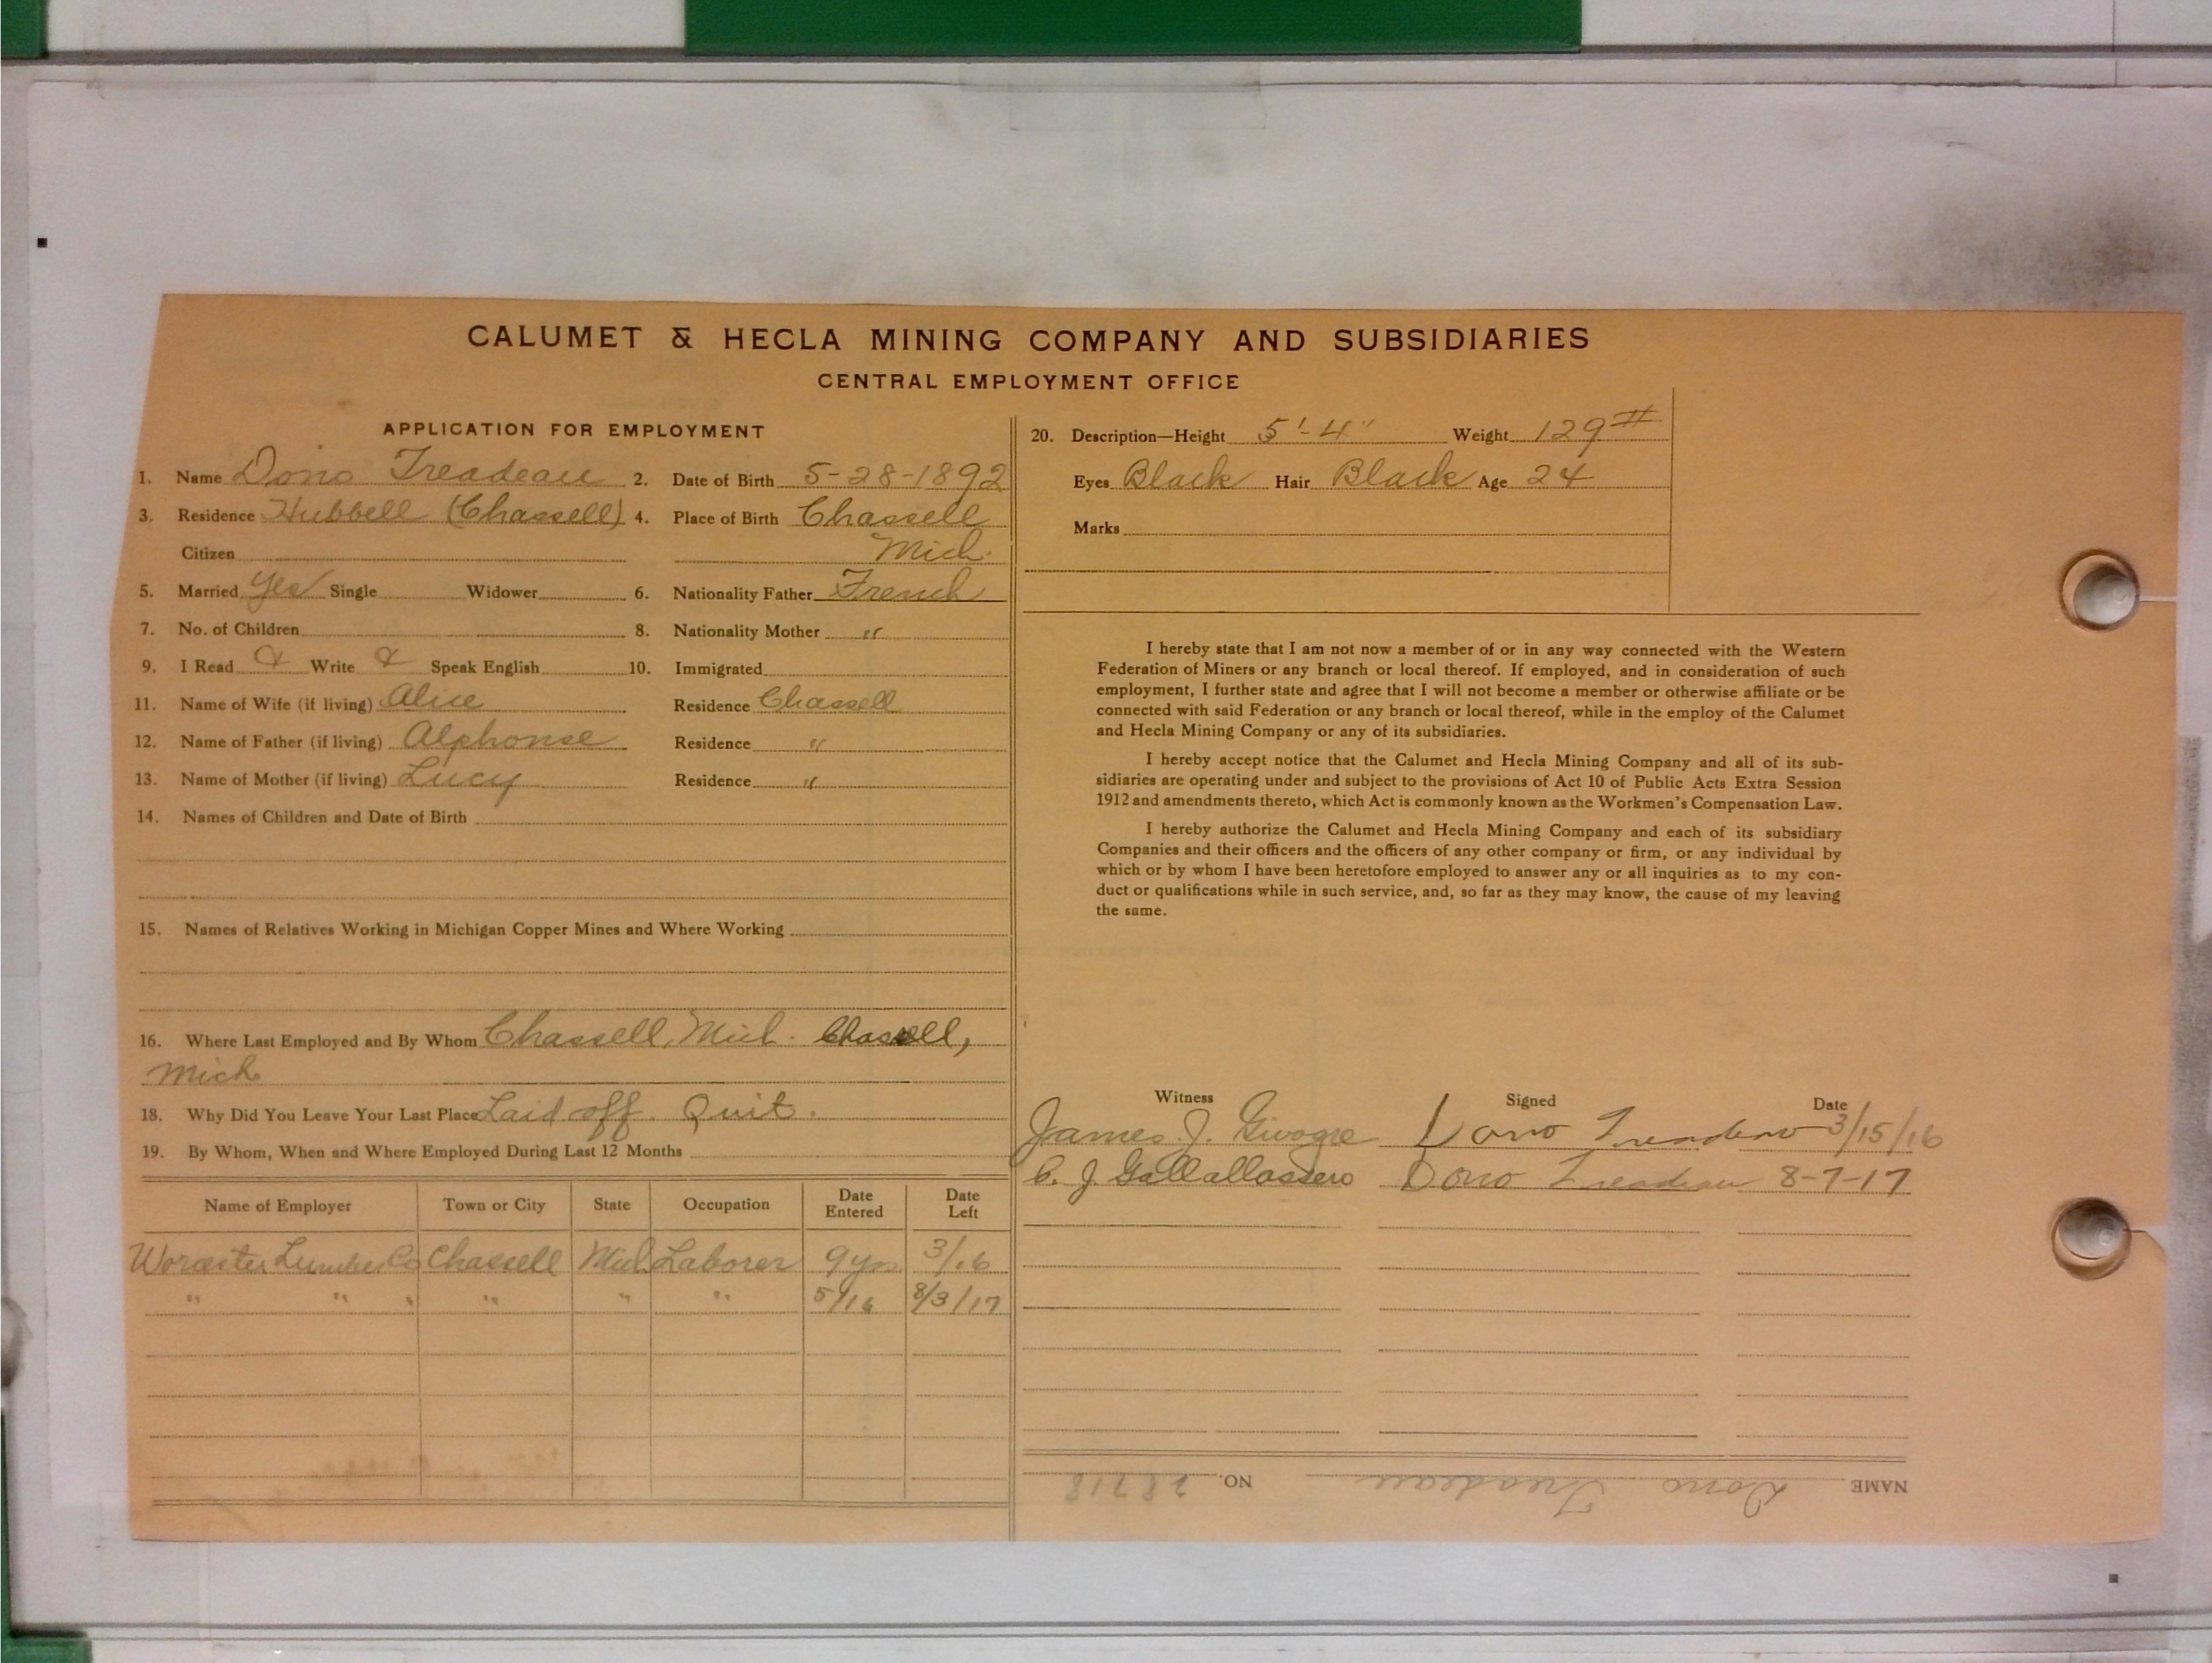 CALUMET & HECLA MINING COMPANY AND SUBSIDIARIES
CENTRAL EMPLOYMENT OFFICE
APPLICATION FOR EMPLOYMENT
1. Name Dono Treadeau 2. Date of Birth 5-28-1892
3. Residence Hubbell (Chassell) 4. Place of Birth Chassell
Citizen Mich.
5. Married Yes Single Widower 6. Nationality Father French
7. No. of Children 8. Nationality Mother "
9. I Read & Write & Speak English 10. Immigrated
11. Name of Wife (if living) Alice Residence Chassell
12. Name of Father (if living) Alphonse Residence "
13. Name of Mother (if living) Lucy Residence "
14. Names of Children and Date of Birth
15. Names of Relatives Working in Michigan Copper Mines and Where Working
16. Where Last Employed and By Whom Chassell, Mich. Chassell,
Mich
18. Why Did You Leave Your Last Place Laid off. Quit.
19. By Whom, When and Where Employed During Last 12 Months
Name of Employer Town or City State Occupation Date Entered Date Left
Worcester Lumber Co Chassell Mich Laborer 9 yrs 3/16
" " " " " " 5/16 8/3/17
20. Description—Height 5'-4" Weight 129#
Eyes Black Hair Black Age 24
Marks
I hereby state that I am not now a member of or in any way connected with the Western
Federation of Miners or any branch or local thereof. If employed, and in consideration of such
employment, I further state and agree that I will not become a member or otherwise affiliate or be
connected with said Federation or any branch or local thereof, while in the employ of the Calumet
and Hecla Mining Company or any of its subsidiaries.
I hereby accept notice that the Calumet and Hecla Mining Company and all of its sub-
sidiaries are operating under and subject to the provisions of Act 10 of Public Acts Extra Session
1912 and amendments thereto, which Act is commonly known as the Workmen's Compensation Law.
I hereby authorize the Calumet and Hecla Mining Company and each of its subsidiary
Companies and their officers and the officers of any other company or firm, or any individual by
which or by whom I have been heretofore employed to answer any or all inquiries as to my con-
duct or qualifications while in such service, and, so far as they may know, the cause of my leaving
the same.
Witness Signed Date
James J. Dono Treadeau 3/15/16
C. J. Dono Treadeau 8-7-17
NAME Dono Treadeau NO. 28718